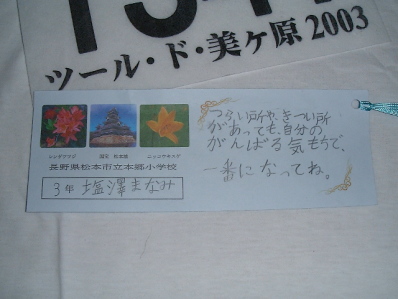 ツール・ド・美ヶ原2003
レンゲツツジ
国宝 松本城
ニッコウキスゲ
長野県松本市立本郷小学校
3年 塩澤まなみ
つらい所や、きつい所
があっても、自分の
がんばる気もちで、
一番になってね。